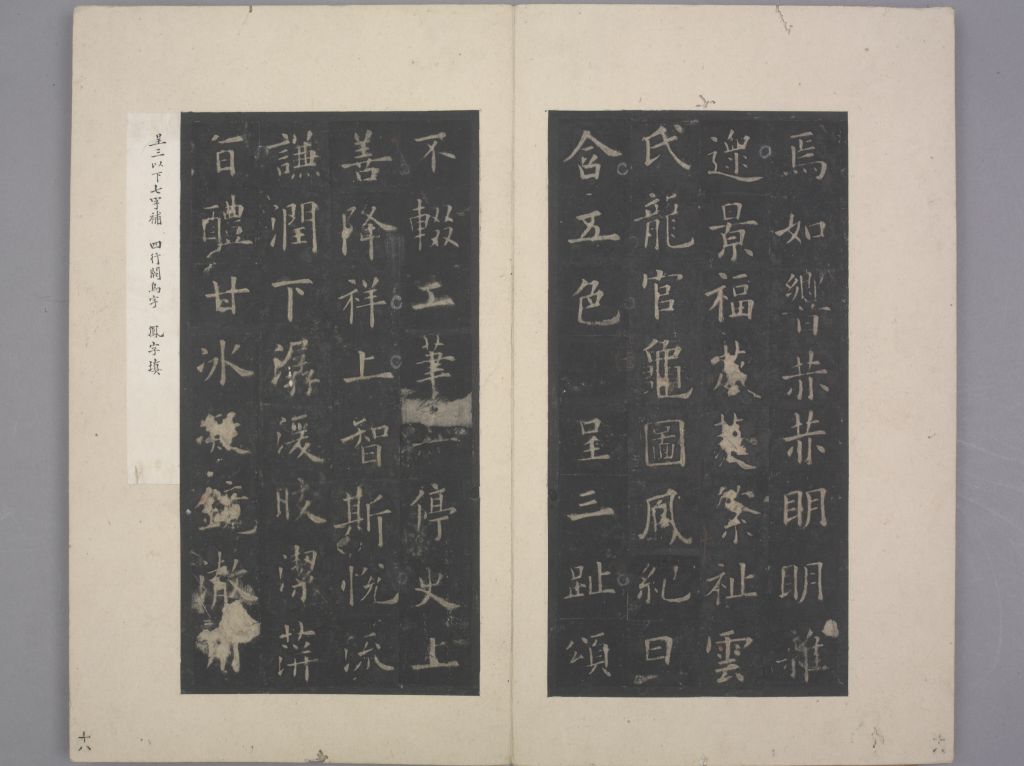 焉如響赫赫明明雜
遝景福葳蕤繁祉雲
氏龍官龜圖鳳紀日
含五色呈三趾頌
不輟工筆停史上
善降祥上智斯悅流
謙潤下潺湲晈潔蓱
旨醴甘冰凝鏡澈用
呈三以下七字補 四行闕烏字 鳳字填
十八